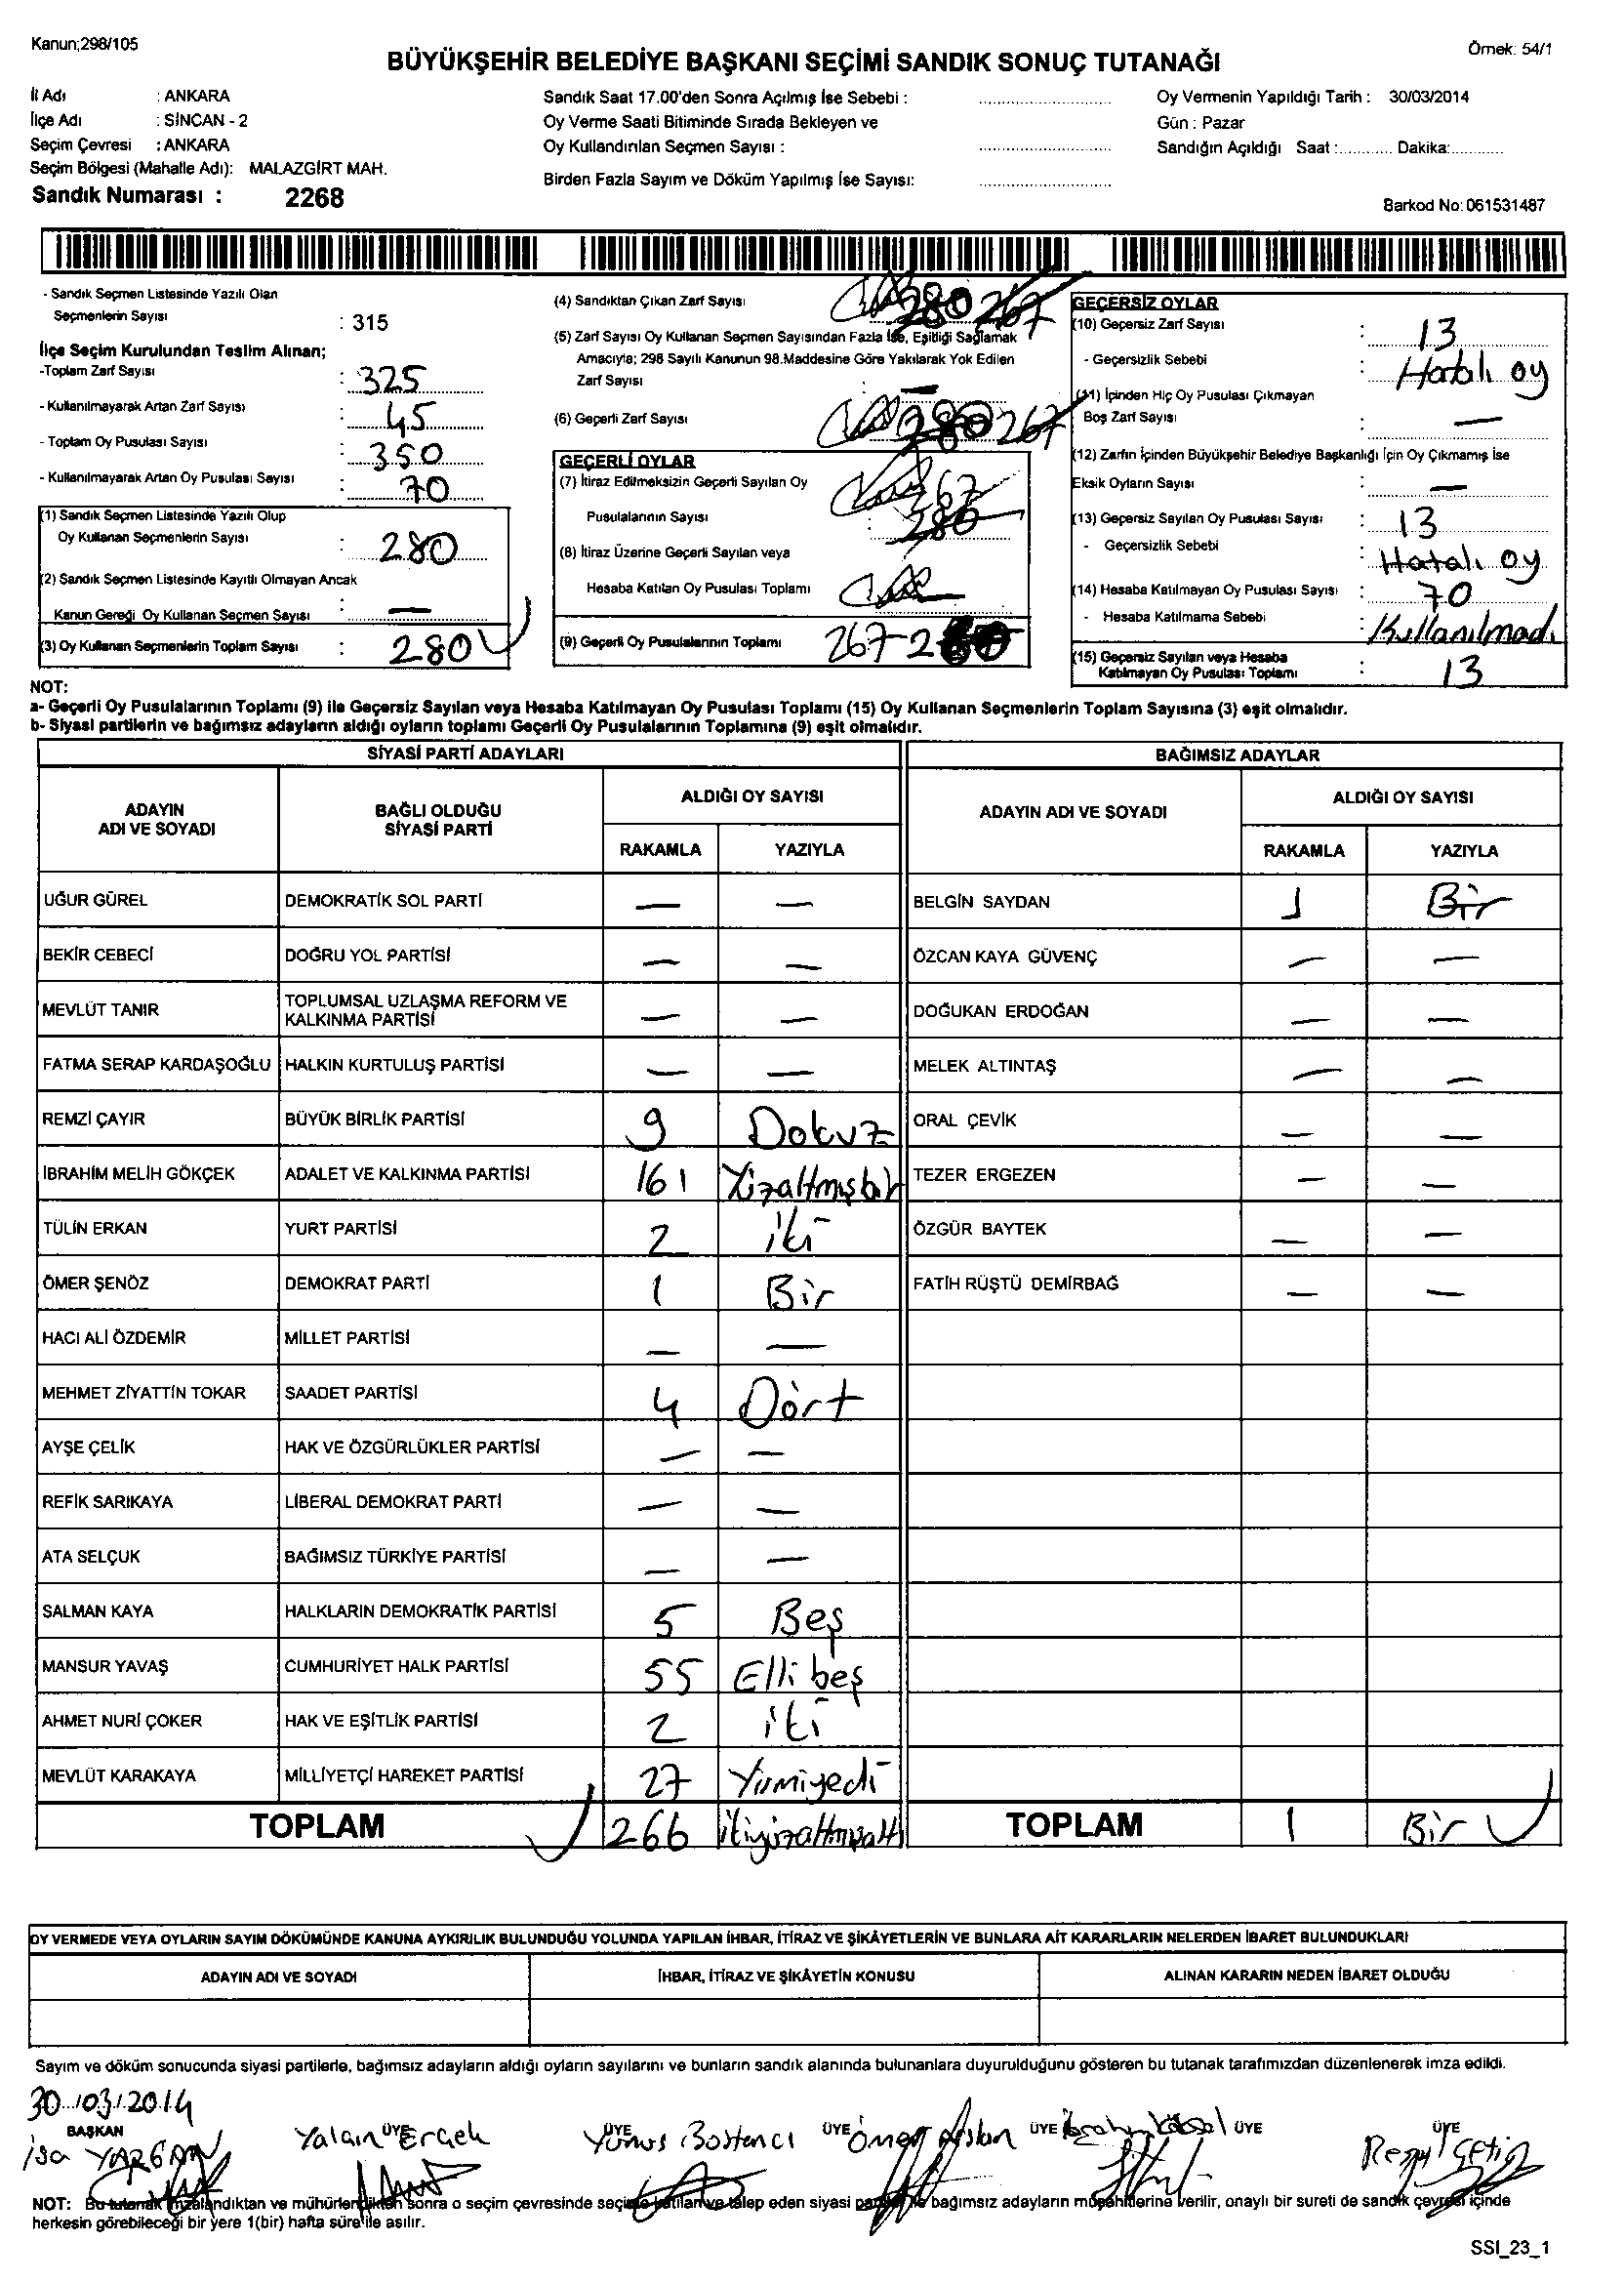 Kanun;298/105
Örnek: 54/1
BÜYÜKŞEHİR BELEDİYE BAŞKANI SEÇİMİ SANDIK SONUÇ TUTANAĞI
İl Adı : ANKARA
İlçe Adı : SİNCAN - 2
Seçim Çevresi : ANKARA
Seçim Bölgesi (Mahalle Adı): MALAZGİRT MAH.
Sandık Numarası : 2268
Sandık Saat 17.00'den Sonra Açılmış İse Sebebi :
Oy Verme Saati Bitiminde Sırada Bekleyen ve
Oy Kullandırılan Seçmen Sayısı :
Birden Fazla Sayım ve Döküm Yapılmış İse Sayısı:
Oy Vermenin Yapıldığı Tarih : 30/03/2014
Gün : Pazar
Sandığın Açıldığı Saat :............ Dakika:............
Barkod No: 061531487
- Sandık Seçmen Listesinde Yazılı Olan
Seçmenlerin Sayısı : 315
İlçe Seçim Kurulundan Teslim Alınan;
-Toplam Zarf Sayısı : 325
- Kullanılmayarak Artan Zarf Sayısı : 45
- Toplam Oy Pusulası Sayısı : 350
- Kullanılmayarak Artan Oy Pusulası Sayısı : 70
(1) Sandık Seçmen Listesinde Yazılı Olup
Oy Kullanan Seçmenlerin Sayısı : 280
(2) Sandık Seçmen Listesinde Kayıtlı Olmayan Ancak
Kanun Gereği Oy Kullanan Seçmen Sayısı : —
(3) Oy Kullanan Seçmenlerin Toplam Sayısı : 280
(4) Sandıktan Çıkan Zarf Sayısı 280 267
(5) Zarf Sayısı Oy Kullanan Seçmen Sayısından Fazla İse, Eşitliği Sağlamak
Amacıyla; 298 Sayılı Kanunun 98.Maddesine Göre Yakılarak Yok Edilen
Zarf Sayısı : —
(6) Geçerli Zarf Sayısı 280 267
GEÇERLİ OYLAR
(7) İtiraz Edilmeksizin Geçerli Sayılan Oy 267
Pusulalarının Sayısı : 280
(8) İtiraz Üzerine Geçerli Sayılan veya
Hesaba Katılan Oy Pusulası Toplamı
(9) Geçerli Oy Pusulalarının Toplamı 267
GEÇERSİZ OYLAR
(10) Geçersiz Zarf Sayısı : 13
- Geçersizlik Sebebi : Hatalı oy
(11) İçinden Hiç Oy Pusulası Çıkmayan
Boş Zarf Sayısı : —
(12) Zarfın İçinden Büyükşehir Belediye Başkanlığı İçin Oy Çıkmamış İse
Eksik Oyların Sayısı : —
(13) Geçersiz Sayılan Oy Pusulası Sayısı : 13
- Geçersizlik Sebebi : Hatalı oy
(14) Hesaba Katılmayan Oy Pusulası Sayısı : 70
- Hesaba Katılmama Sebebi : Kullanılmadı
(15) Geçersiz Sayılan veya Hesaba
Katılmayan Oy Pusulası Toplamı : 13
NOT:
a- Geçerli Oy Pusulalarının Toplamı (9) ile Geçersiz Sayılan veya Hesaba Katılmayan Oy Pusulası Toplamı (15) Oy Kullanan Seçmenlerin Toplam Sayısına (3) eşit olmalıdır.
b- Siyasi partilerin ve bağımsız adayların aldığı oyların toplamı Geçerli Oy Pusulalarının Toplamına (9) eşit olmalıdır.
SİYASİ PARTİ ADAYLARI
ADAYIN ADI VE SOYADI BAĞLI OLDUĞU SİYASİ PARTİ ALDIĞI OY SAYISI
RAKAMLA YAZIYLA
UĞUR GÜREL DEMOKRATİK SOL PARTİ — —
BEKİR CEBECİ DOĞRU YOL PARTİSİ — —
MEVLÜT TANIR TOPLUMSAL UZLAŞMA REFORM VE KALKINMA PARTİSİ — —
FATMA SERAP KARDAŞOĞLU HALKIN KURTULUŞ PARTİSİ — —
REMZİ ÇAYIR BÜYÜK BİRLİK PARTİSİ 9 Dokuz
İBRAHİM MELİH GÖKÇEK ADALET VE KALKINMA PARTİSİ 161 Yüzaltmışbir
TÜLİN ERKAN YURT PARTİSİ 2 iki
ÖMER ŞENÖZ DEMOKRAT PARTİ 1 Bir
HACI ALİ ÖZDEMİR MİLLET PARTİSİ — —
MEHMET ZİYATTİN TOKAR SAADET PARTİSİ 4 Dört
AYŞE ÇELİK HAK VE ÖZGÜRLÜKLER PARTİSİ — —
REFİK SARIKAYA LİBERAL DEMOKRAT PARTİ — —
ATA SELÇUK BAĞIMSIZ TÜRKİYE PARTİSİ — —
SALMAN KAYA HALKLARIN DEMOKRATİK PARTİSİ 5 Beş
MANSUR YAVAŞ CUMHURİYET HALK PARTİSİ 55 Elli beş
AHMET NURİ ÇOKER HAK VE EŞİTLİK PARTİSİ 2 iki
MEVLÜT KARAKAYA MİLLİYETÇİ HAREKET PARTİSİ 27 Yirmiyedi
TOPLAM 266 ikiyüzaltmışaltı
BAĞIMSIZ ADAYLAR
ADAYIN ADI VE SOYADI ALDIĞI OY SAYISI
RAKAMLA YAZIYLA
BELGİN SAYDAN 1 Bir
ÖZCAN KAYA GÜVENÇ — —
DOĞUKAN ERDOĞAN — —
MELEK ALTINTAŞ — —
ORAL ÇEVİK — —
TEZER ERGEZEN — —
ÖZGÜR BAYTEK — —
FATİH RÜŞTÜ DEMİRBAĞ — —
TOPLAM 1 Bir
OY VERMEDE VEYA OYLARIN SAYIM DÖKÜMÜNDE KANUNA AYKIRILIK BULUNDUĞU YOLUNDA YAPILAN İHBAR, İTİRAZ VE ŞİKÂYETLERİN VE BUNLARA AİT KARARLARIN NELERDEN İBARET BULUNDUKLARI
ADAYIN ADI VE SOYADI İHBAR, İTİRAZ VE ŞİKÂYETİN KONUSU ALINAN KARARIN NEDEN İBARET OLDUĞU
Sayım ve döküm sonucunda siyasi partilerle, bağımsız adayların aldığı oyların sayılarını ve bunların sandık alanında bulunanlara duyurulduğunu gösteren bu tutanak tarafımızdan düzenlenerek imza edildi.
30/03/2014
BAŞKAN ÜYE ÜYE ÜYE ÜYE ÜYE ÜYE
isa YAZGAN Yalçın Erçek Yunus Bostancı Ömer Aslan İbrahim
NOT: Bu tutanak imzalandıktan ve mühürlendikten sonra o seçim çevresinde seçime katılan ve talep eden siyasi parti ile bağımsız adayların müşahitlerine verilir, onaylı bir sureti de sandık çevresi içinde
herkesin görebileceği bir yere 1(bir) hafta süre ile asılır.
SSI_23_1